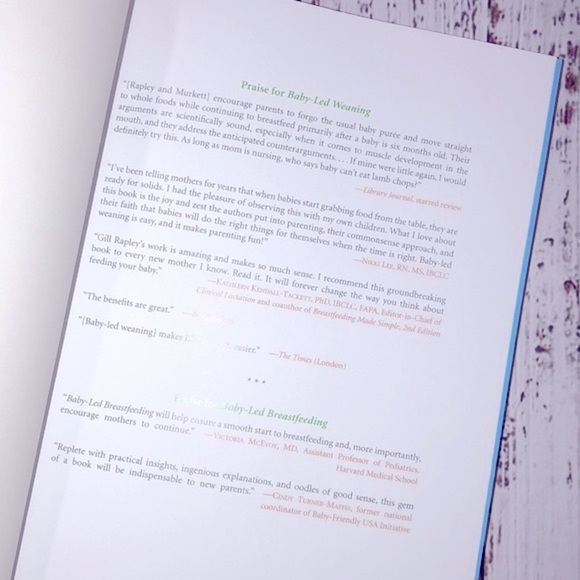 Praise for Baby-Led Weaning
"[Rapley and Murkett] encourage parents to forgo the usual baby purée and move straight
to whole foods while continuing to breastfeed primarily after a baby is six months old. Their
arguments are scientifically sound, especially when it comes to muscle development in the
mouth, and they address the anticipated counterarguments. . . . If mine were little again, I would
definitely try this. As long as mom is nursing, who says baby can't eat lamb chops?"
—Library Journal, starred review
"I've been telling mothers for years that when babies start grabbing food from the table, they are
ready for solids. I had the pleasure of observing this with my own children. What I love about
this book is the joy and zest the authors put into parenting, their commonsense approach, and
their faith that babies will do the right things for themselves when the time is right. Baby-led
weaning is easy, and it makes parenting fun!"
—Nikki Lee, RN, MS, IBCLC
"Gill Rapley's work is amazing and makes so much sense. I recommend this groundbreaking
book to every new mother I know. Read it. It will forever change the way you think about
feeding your baby."
—Kathleen Kendall-Tackett, PhD, IBCLC, FAPA, Editor-in-Chief of
Clinical Lactation and coauthor of Breastfeeding Made Simple, 2nd Edition
"The benefits are great."
"[Baby-led weaning] makes easier." —The Times (London)
* * *
Praise for Baby-Led Breastfeeding
"Baby-Led Breastfeeding will help ensure a smooth start to breastfeeding and, more importantly,
encourage mothers to continue." —Victoria McEvoy, MD, Assistant Professor of Pediatrics,
Harvard Medical School
"Replete with practical insights, ingenious explanations, and oodles of good sense, this gem
of a book will be indispensable to new parents." —Cindy Turner-Maffei, former national
coordinator of Baby-Friendly USA Initiative